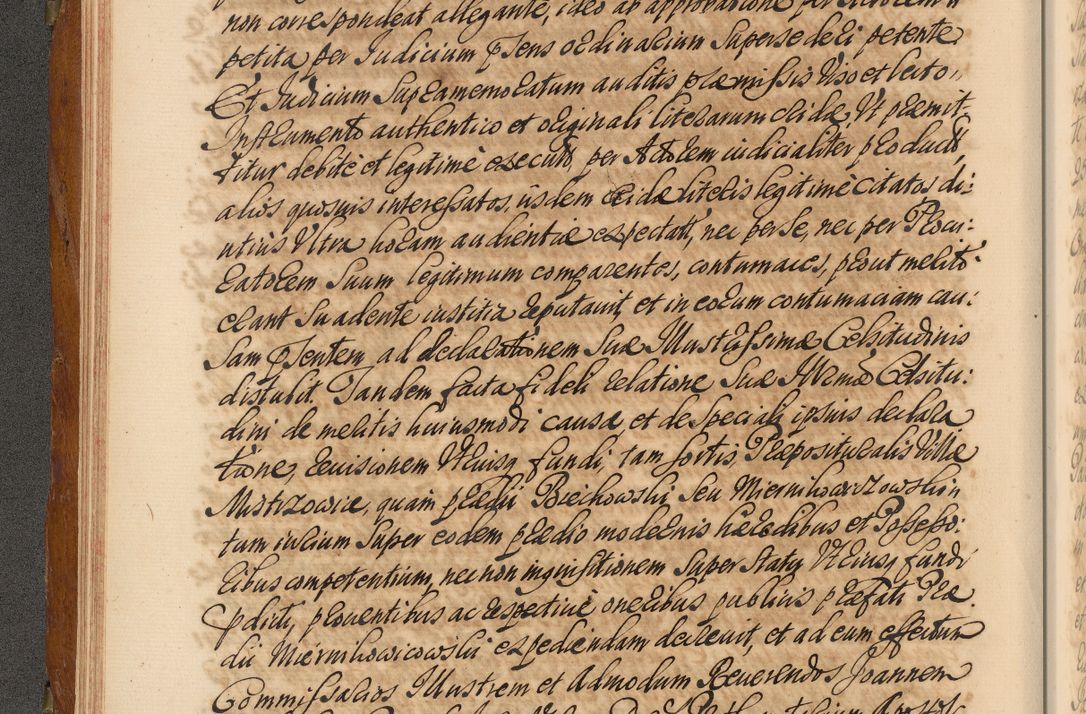 non correspondeat allegante, ideo ab approbatione per Actorem
petita per Judicium pñsens ordinarium Supersederi petente
Et Judicium Supramemoratum auditis præmissis Viso et lecto
Instrumento authentico et originali literarum cridæ Ut præmit-
titur debite et legitimè executt, per Actorem iudicialiter product,
aliós quosvis interessatos iisdem cridæ literis legitimè citatos di:
utius Ultra horam audientiæ expectatt, nec per se, nec per Procu:
ratorem Suum legitimum comparentes, contumaces, prout merito
erant Suadente iustitia reputavit, et in eorum contumaciam cau:
sam pñsentem ad declarationem Suæ Illustrissimæ Celsitudinis
distulit. Tandem facta fideli relatione Suæ Illmæ Celsitu:
dini de meritis huiusmodi causæ, et de speciali ipsius declara
tione, revisionem Utriusq fundi, tam sortis Præpositurealis Villæ
Mistrzowice, quam prædii Biechowski seu Miernikowiczowskin
tum iurium super eodem prædio modernis hæredibus et Possesso:
ribus competentium, nec non inquisitionem Super statu Utriusq fundi
pdicti, proventibus ac respective oneribus publicis præfati Præ
dii Miernikowicowski expediendam decrevit, et ad eum effectum
Commissarios Illustrem et Admodum Reverendos Joannem